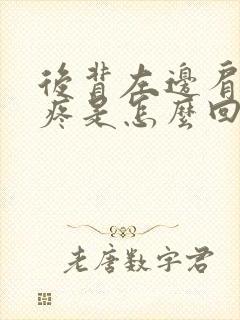 後背左邊肩
疼是怎麼回
老唐數字君